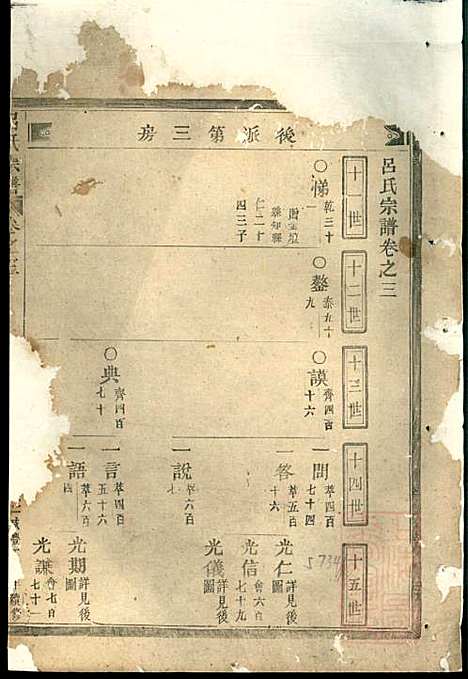 呂氏宗譜卷之三
後派第三房
十一世
十二世
十三世
十四世
十五世
○悌 乾三十一
仁二十
四三子
○鏊 泰五十九
○謨 齊四百十六
○典 齊四百七十
一問 萃四百七十四
一答 萃五百十六
一說 萃六百七
一言 萃四百五十六
一語 萃六百四
光仁 詳見後圖
光信 會六百七十九
光儀 詳見後圖
光期 詳見後圖
光謙 會七百七十一
呂氏宗譜
5734